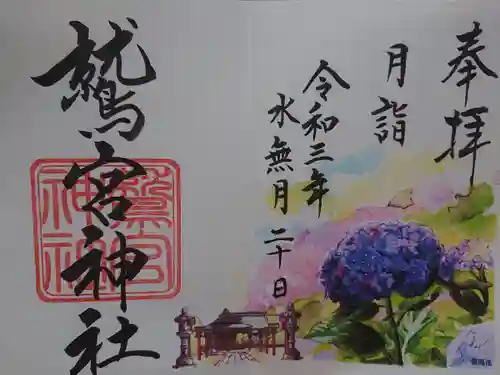 奉拝
月詣
令和三年
水無月二十日
鷲宮神社
鷲宮神社